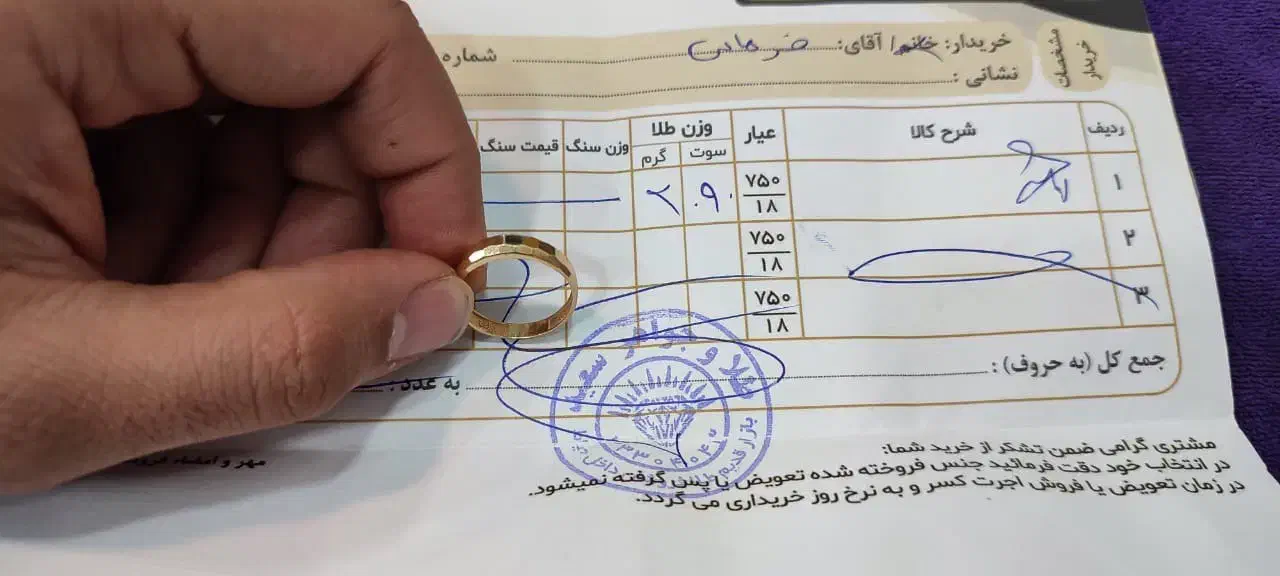 مشخصات خریدار
خریدار: خانم/ آقای: شماره
نشانی :
ردیف شرح کالا عیار وزن طلا وزن سنگ قیمت سنگ
سوت گرم
۱ ۷۵۰/۱۸ ۹۰ ۲
۲ ۷۵۰/۱۸
۳ ۷۵۰/۱۸
جمع کل (به حروف) : به عدد :
طلا و جواهر سعید
بازار قدیم داخل
مشتری گرامی ضمن تشکر از خرید شما:
در انتخاب خود دقت فرمائید جنس فروخته شده تعویض یا پس گرفته نمیشود.
در زمان تعویض یا فروش اجرت کسر و به نرخ روز خریداری می گردد.
مهر و امضاء